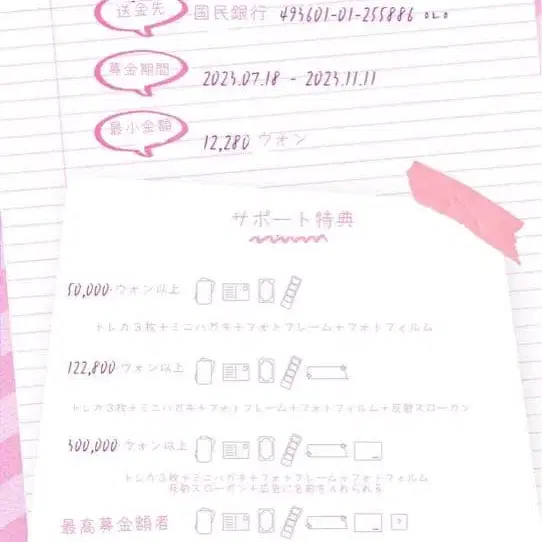 送金先
国民銀行 493601-01-255886 ㅇㄴㅇ
募金期間
2023.07.18 - 2023.11.11
最小金額
12,280 ウォン
サポート特典
50,000 ウォン以上
トレカ3枚+ミニハガキ+フォトフレーム+フォトフィルム
122,800 ウォン以上
トレカ3枚+ミニハガキ+フォトフレーム+フォトフィルム+反射スローガン
300,000 ウォン以上
トレカ3枚+ミニハガキ+フォトフレーム+フォトフィルム
反射スローガン+広告に名前を入れられる
最高募金額者
?